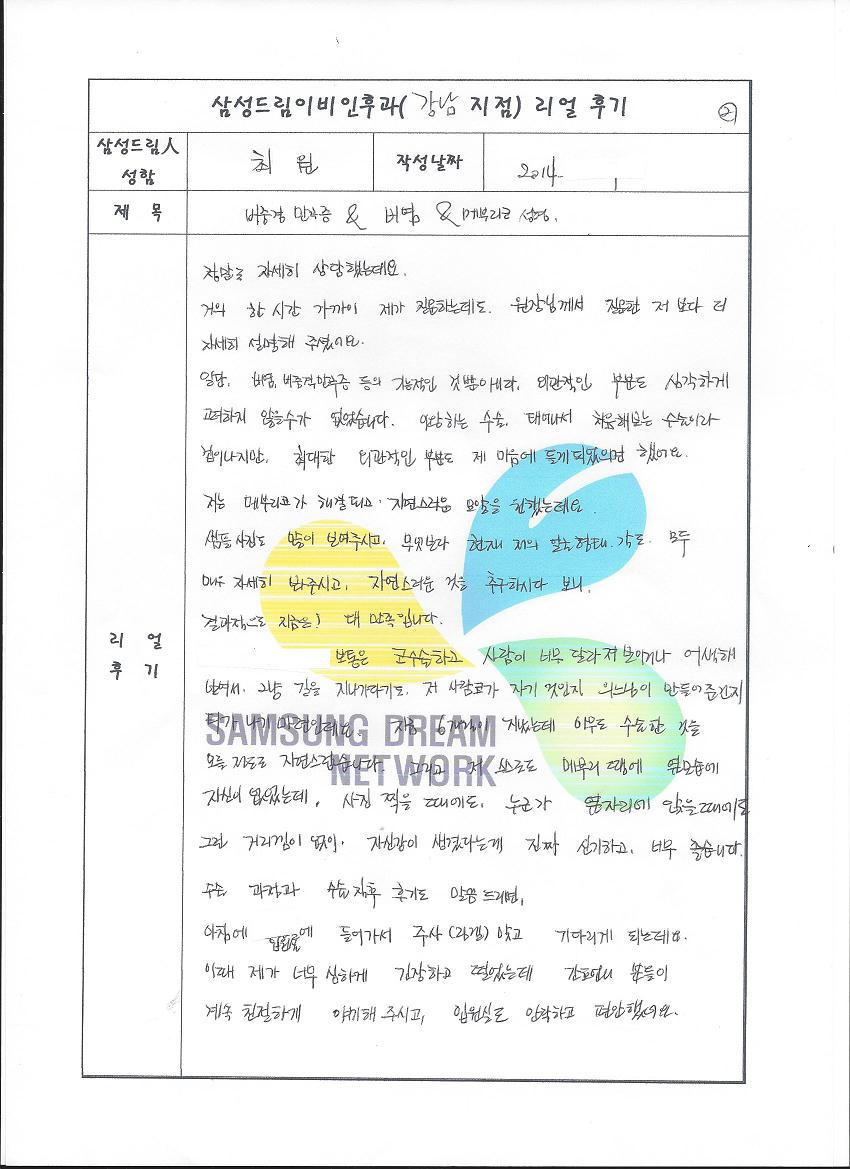 삼성드림이비인후과( 강남 지점) 리얼 후기
②
삼성드림人 성함
최 원
작성날짜
2014. 1
제 목
비중격 만곡증 & 비염 & 메부리코 성형.
리 얼 후 기
정말로 자세히 상담했는데요.
거의 한 시간 가까이 제가 질문하는데도. 원장님께서 질문한 저 보다 더
자세히 설명해 주셨어요.
일단, 비염, 비중격만곡증 등의 기능적인 것뿐아니라, 외관적인 부분도 심각하게
고려하지 않을수가 없었습니다. 수술, 태어나서 처음해보는 수술이라
겁이나지만, 최대한 외관적인 부분도 제 마음에 들게되었으면 했어요.
저는 메부리코가 해결되고, 자연스러운 모양을 원했는데요
샘플사진도 많이 보여주시고, 무엇보다 현재 저의 형태. 각도. 모두
매우 자세히 봐주시고, 자연스러운 것을 추구하시다 보니,
결과적으로 지금은! 대 만족입니다.
보통은 코수술하고 사람이 너무 달라져 보이거나 어색해
보여서, 그냥 길을 지나가다가도, 저 사람코가 자기 것인지 의느님이 만들어준건지
티가 나기 마련인데요. 지금 6개월이 지났는데 아무도 수술한 것을
모를 정도로 자연스럽습니다. 그리고 저 스스로도 메부리 땜에 옆모습에
자신이 없었는데, 사진 찍을 때에도, 누군가 옆자리에 앉을때에도
그런 거리낌이 없이, 자신감이 생겼다는게 진짜 신기하고, 너무 좋습니다.
수술 과정과 수술직후 후기도 말씀 드리면,
아침에 입원실에 들어가서 주사 (링겔) 맞고 기다리게 되는데요.
이때 제가 너무 심하게 긴장하고 떨었는데 간호언니 분들이
계속 친절하게 얘기해 주시고, 입원실도 안락하고 편안했어요.
SAMSUNG DREAM
NETWORK